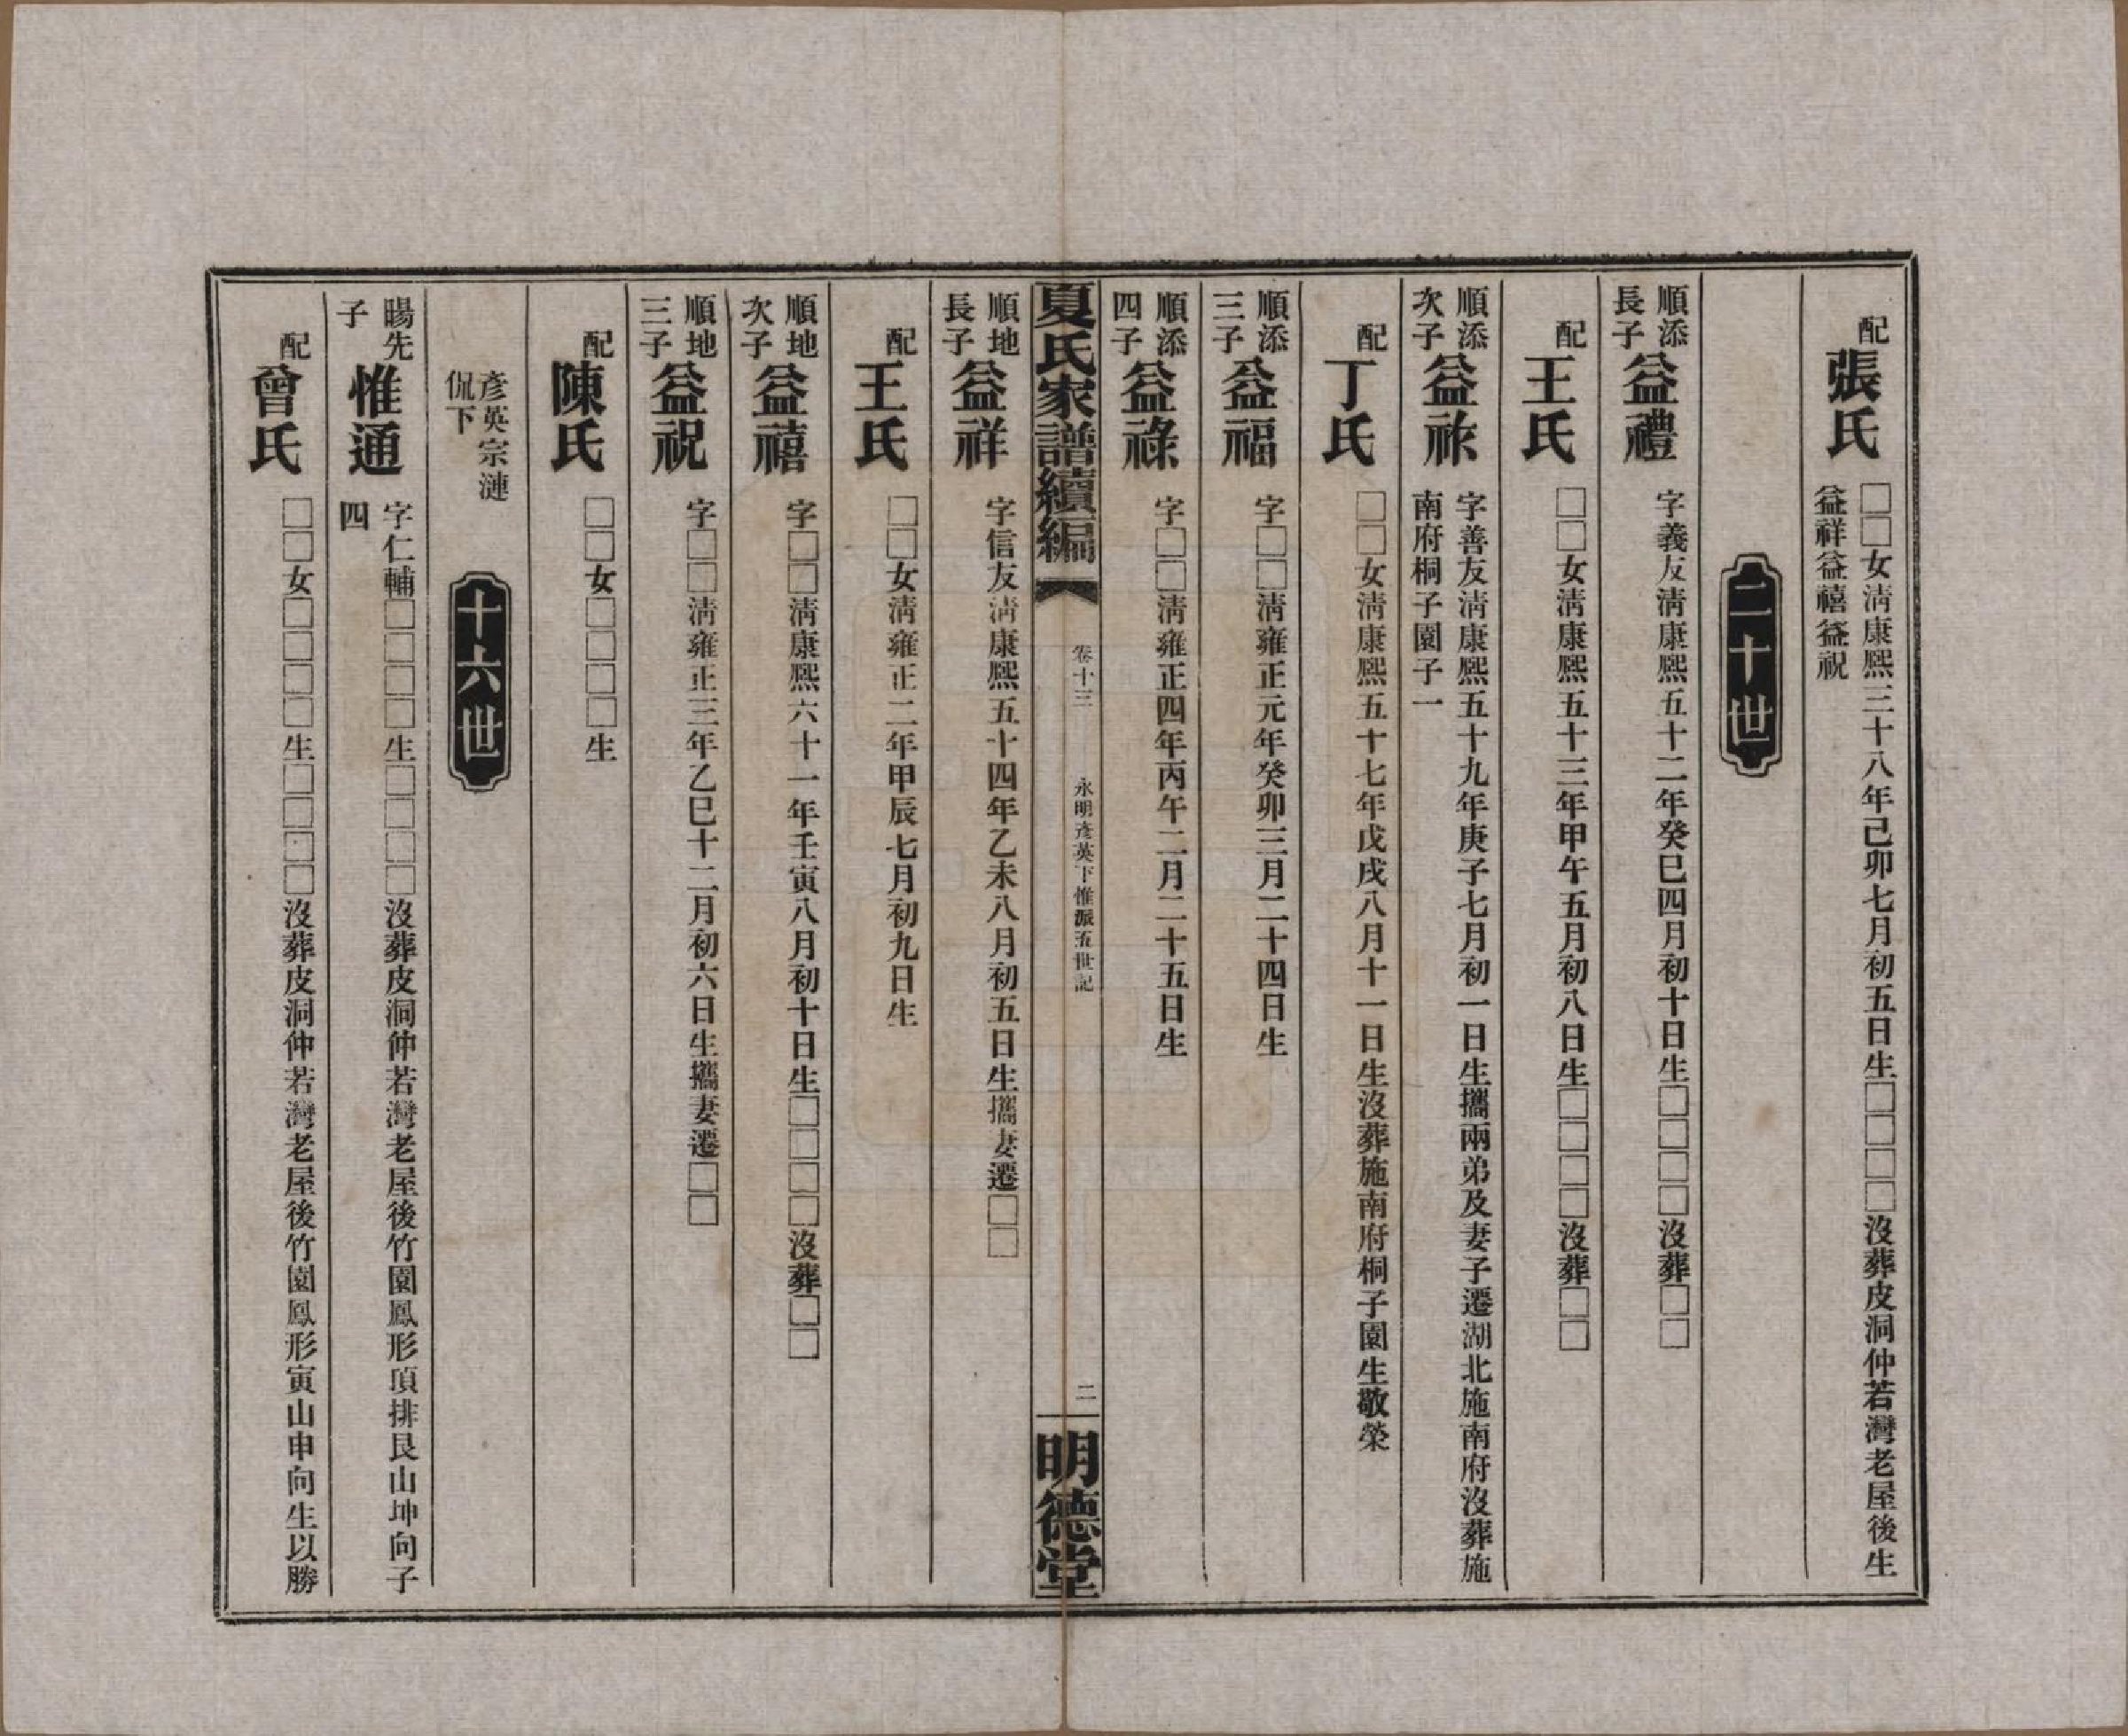 配 張氏 □□女清康熙三十八年己卯七月初五日生□□□□沒葬皮洞仲若灣老屋後生
益祥益禧益祝
二十世
順添
長子 益禮 字義友清康熙五十二年癸巳四月初十日生□□□□沒葬□□
配 王氏 □□女清康熙五十三年甲午五月初八日生□□□□沒葬□□
順添
次子 益祚 字善友清康熙五十九年庚子七月初一日生攜兩弟及妻子遷湖北施南府沒葬施
南府桐子園子一
配 丁氏 □□女清康熙五十七年戊戌八月十一日生沒葬施南府桐子園生敬榮
順添
三子 益福 字□□清雍正元年癸卯三月二十四日生
順添
四子 益祿 字□□清雍正四年丙午二月二十五日生
夏氏家譜續編 卷十三 永明彥英下惟派五世記 二 明德堂
順地
長子 益祥 字信友清康熙五十四年乙未八月初五日生攜妻遷□□
配 王氏 □□女清雍正二年甲辰七月初九日生
順地
次子 益禧 字□□清康熙六十一年壬寅八月初十日生□□□□沒葬□□
順地
三子 益祝 字□□清雍正三年乙巳十二月初六日生攜妻遷□□
配 陳氏 □□女□□□□生
彥英宗漣
侃下
十六世
暘先
子 惟通 字仁輔□□□□生□□□□沒葬皮洞仲若灣老屋後竹園鳳形頂排艮山坤向子
四
配 曾氏 □□女□□□□生□□□□沒葬皮洞仲若灣老屋後竹園鳳形寅山申向生以勝